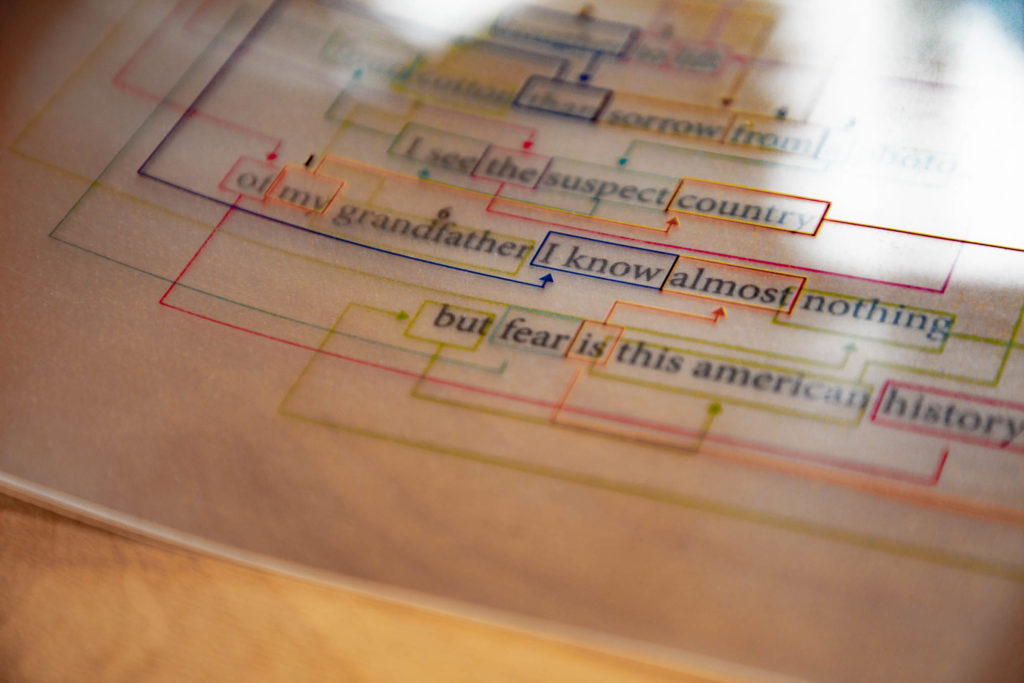 than sorrow from a photo
I see the suspect country
of my grandfather I know almost nothing
but fear is this american history